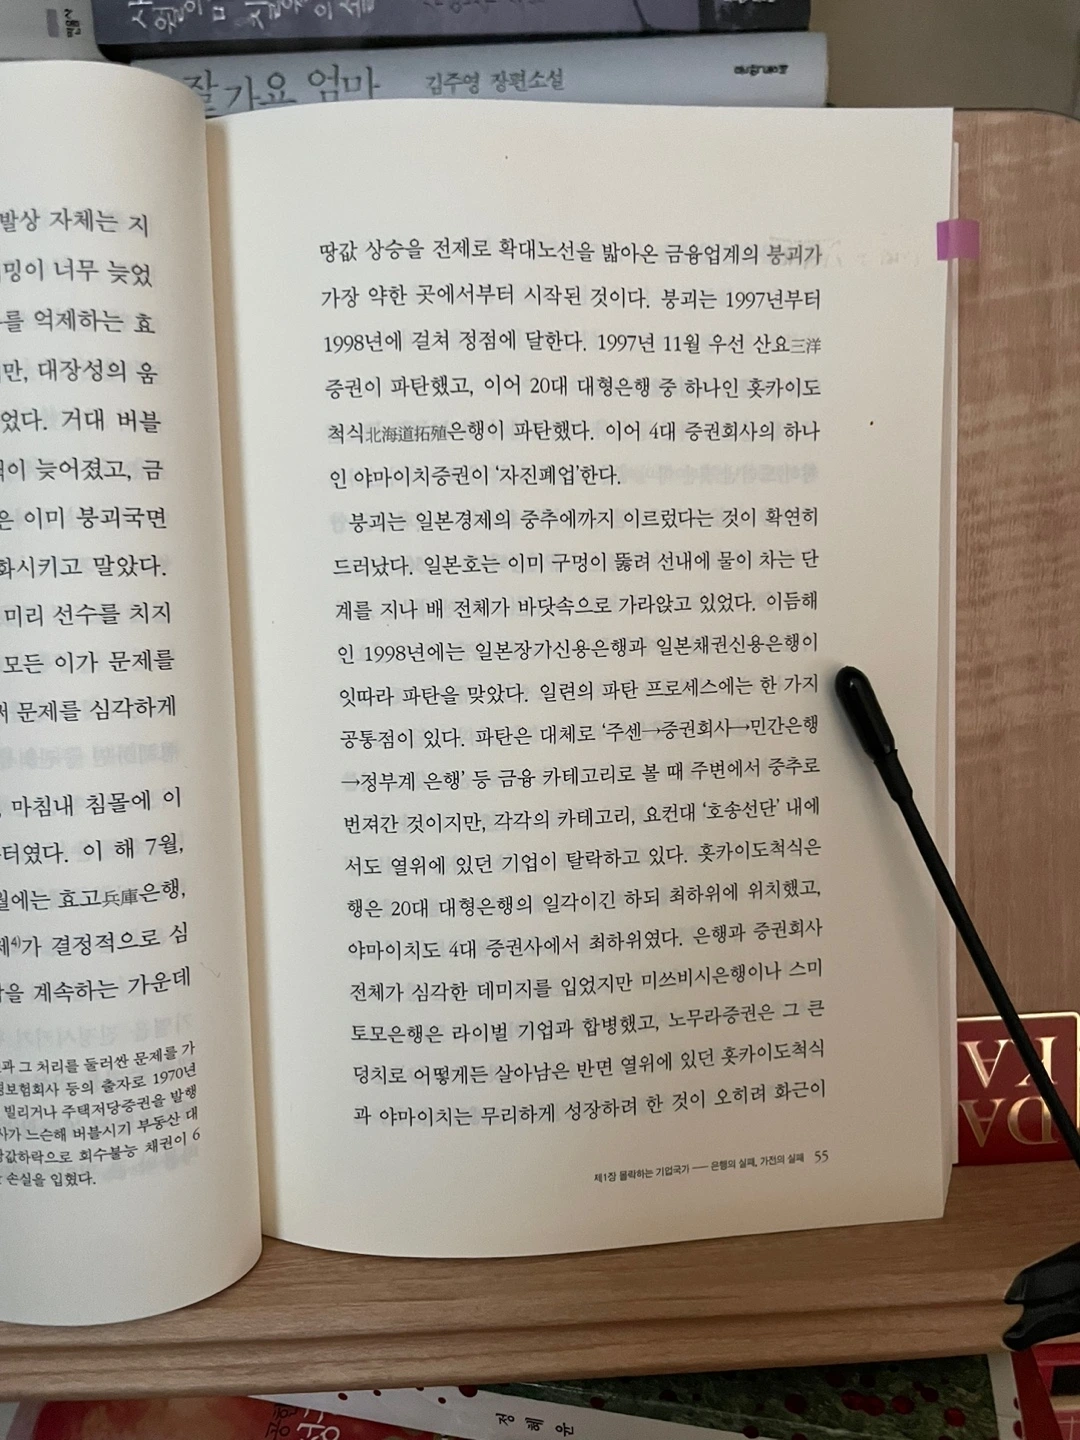 잘가요 엄마 김주영 장편소설
발상 자체는 지
밍이 너무 늦었
를 억제하는 효
만, 대장성의 움
었다. 거대 버블
이 늦어졌고, 금
은 이미 붕괴국면
화시키고 말았다.
미리 선수를 치지
모든 이가 문제를
문제를 심각하게
마침내 침몰에 이
터였다. 이 해 7월,
월에는 효고兵庫은행,
제4)가 결정적으로 심
을 계속하는 가운데
과 그 처리를 둘러싼 문제를 가
보험회사 등의 출자로 1970년
빌리거나 주택저당증권을 발행
사가 느슨해 버블시기 부동산 대
값하락으로 회수불능 채권이 6
손실을 입혔다.
땅값 상승을 전제로 확대노선을 밟아온 금융업계의 붕괴가
가장 약한 곳에서부터 시작된 것이다. 붕괴는 1997년부터
1998년에 걸쳐 정점에 달한다. 1997년 11월 우선 산요三洋
증권이 파탄했고, 이어 20대 대형은행 중 하나인 홋카이도
척식北海道拓殖은행이 파탄했다. 이어 4대 증권회사의 하나
인 야마이치증권이 ‘자진폐업’한다.
붕괴는 일본경제의 중추에까지 이르렀다는 것이 확연히
드러났다. 일본호는 이미 구멍이 뚫려 선내에 물이 차는 단
계를 지나 배 전체가 바닷속으로 가라앉고 있었다. 이듬해
인 1998년에는 일본장기신용은행과 일본채권신용은행이
잇따라 파탄을 맞았다. 일련의 파탄 프로세스에는 한 가지
공통점이 있다. 파탄은 대체로 ‘주센→증권회사→민간은행
→정부계 은행’ 등 금융 카테고리로 볼 때 주변에서 중추로
번져간 것이지만, 각각의 카테고리, 요컨대 ‘호송선단’ 내에
서도 열위에 있던 기업이 탈락하고 있다. 홋카이도척식은
행은 20대 대형은행의 일각이긴 하되 최하위에 위치했고,
야마이치도 4대 증권사에서 최하위였다. 은행과 증권회사
전체가 심각한 데미지를 입었지만 미쓰비시은행이나 스미
토모은행은 라이벌 기업과 합병했고, 노무라증권은 그 큰
덩치로 어떻게든 살아남은 반면 열위에 있던 홋카이도척식
과 야마이치는 무리하게 성장하려 한 것이 오히려 화근이
제1장 몰락하는 기업국가 — 은행의 실패, 가전의 실패 55
DA
KA
정혜윤